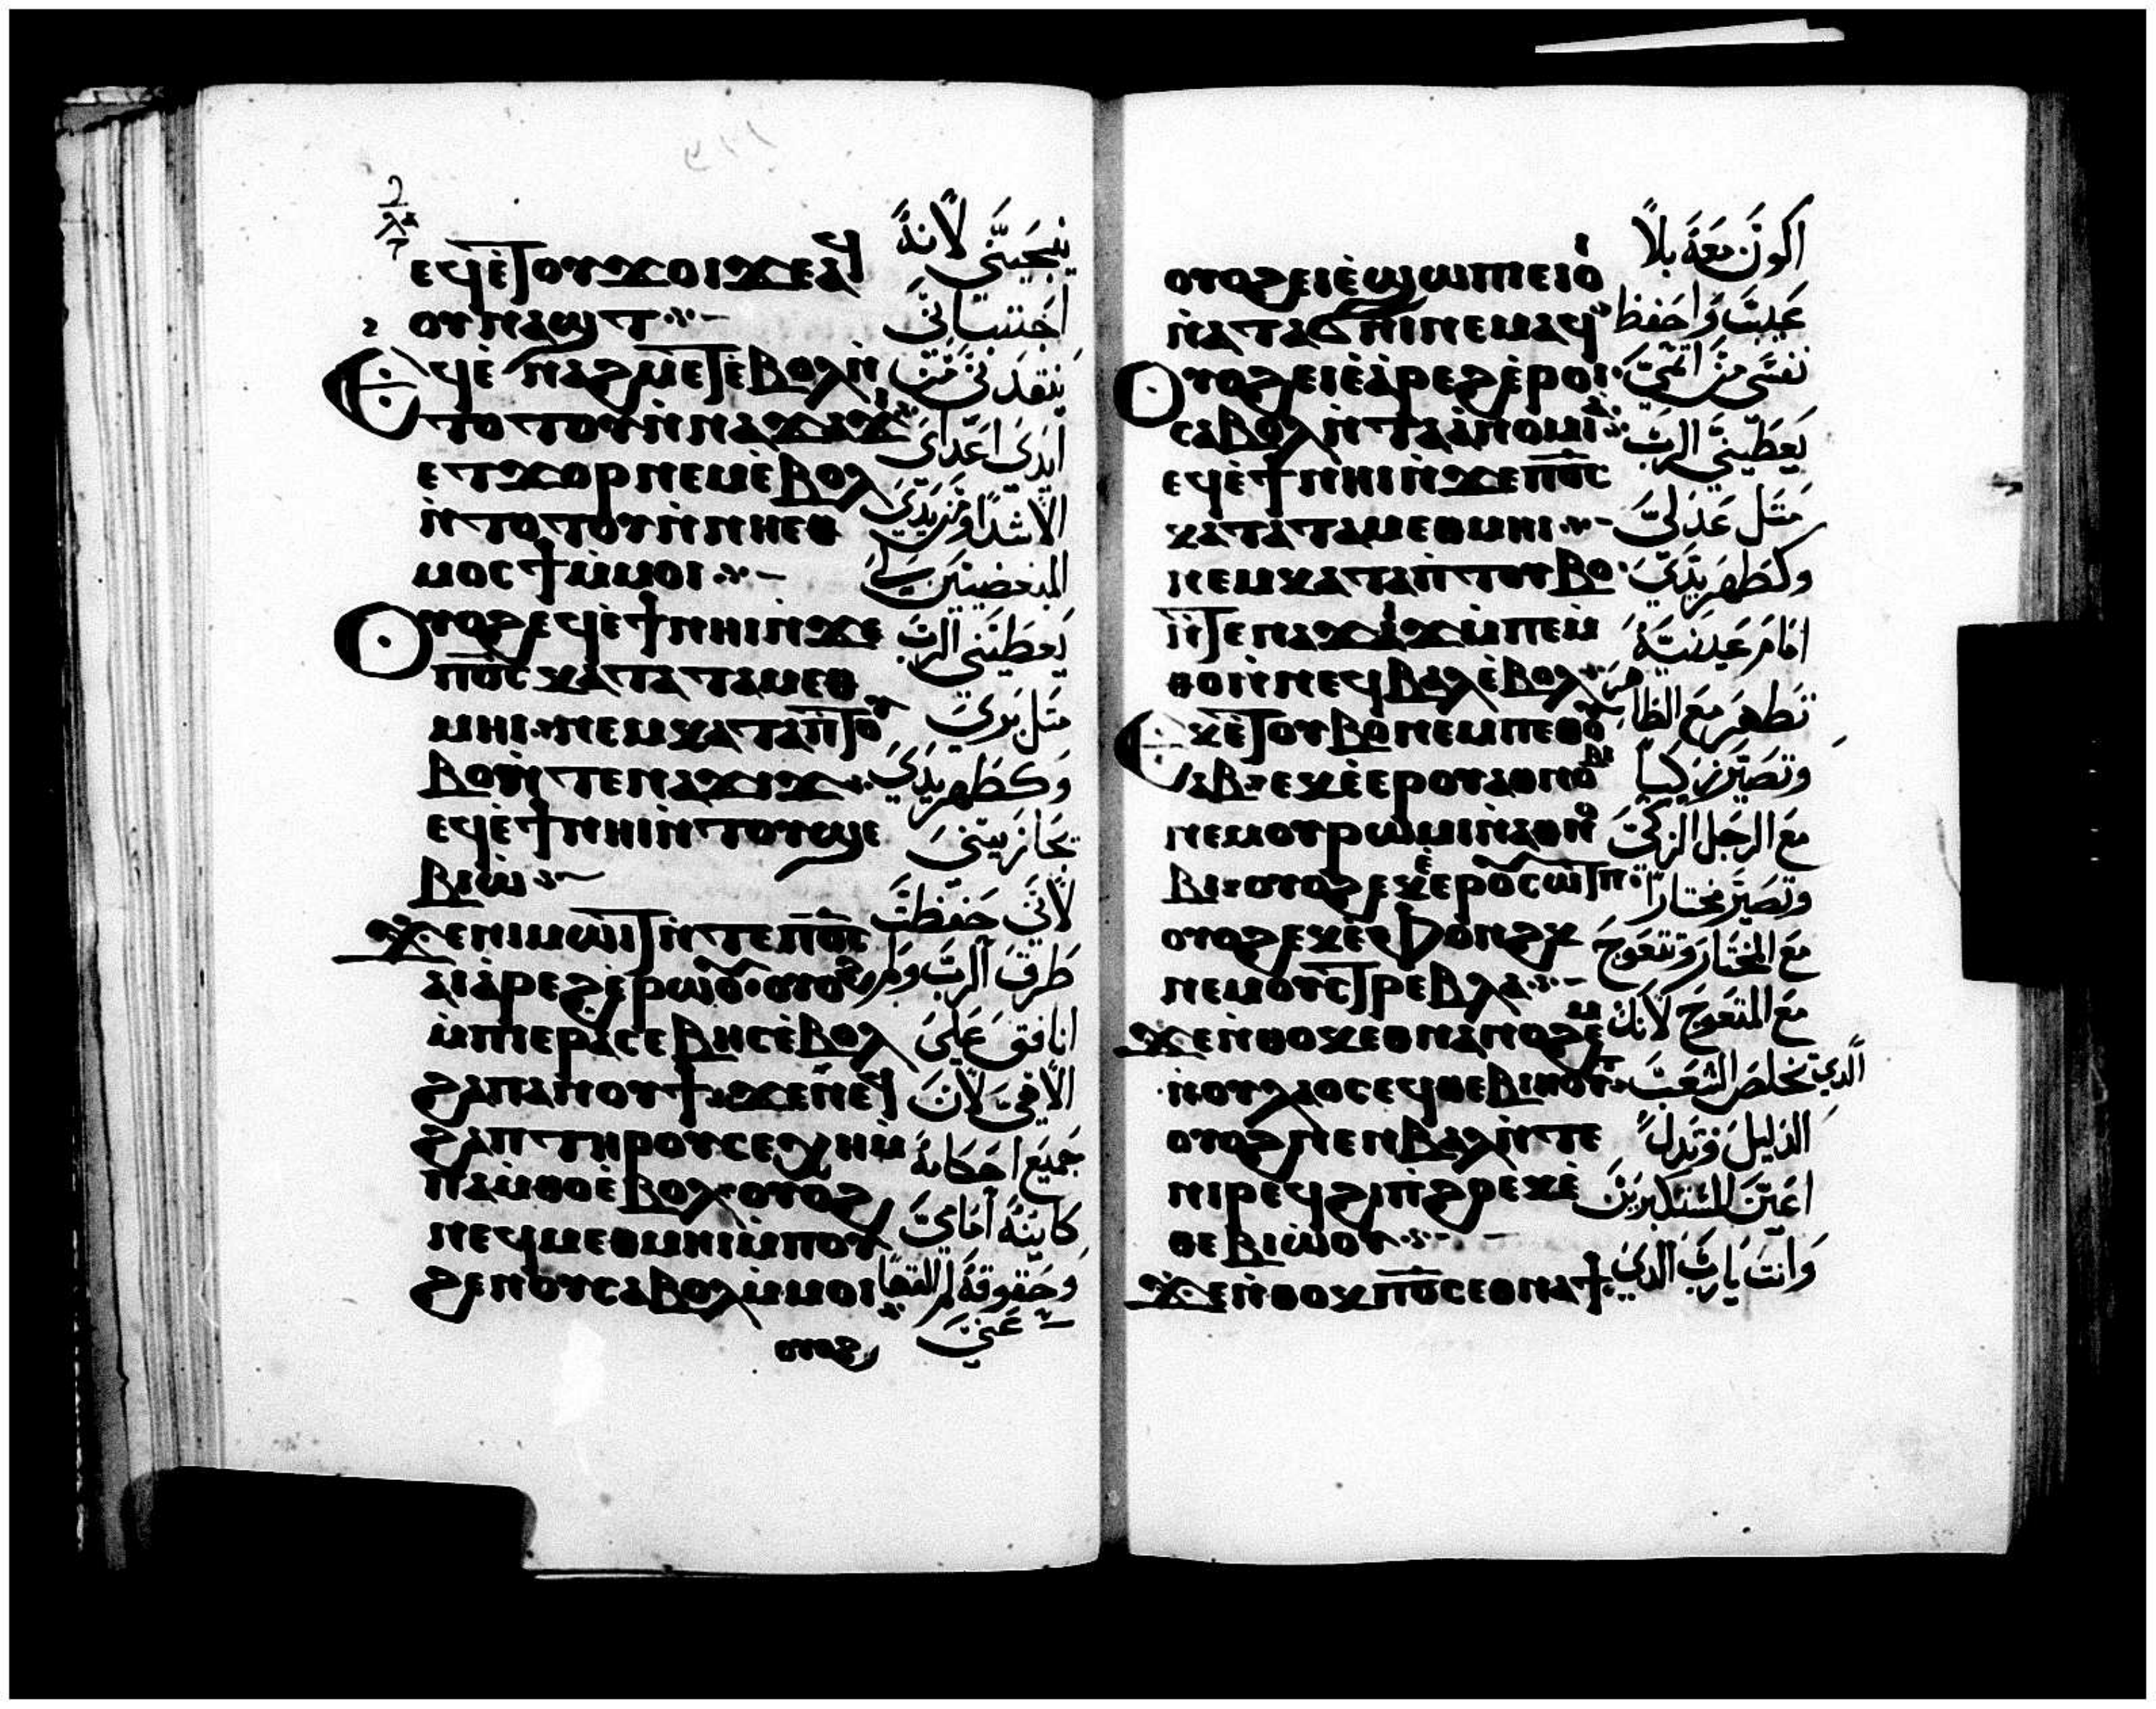 ⲉϥⲉ̀ⲧⲟⲩϫⲟⲓϫⲉⲁϥ
ⲟⲩⲛⲁϣⲧ⁘
ⲉϥⲉ̀ⲛⲁϩⲙⲉⲧⲉ̀ⲃⲟⲗⲛ̀
ⲧⲟⲧⲟⲩⲛ̀ⲛⲁϫⲁϫⲓ
ⲉⲧϫⲟⲣⲛⲉⲙⲉ̀ⲃⲟⲗ
ⲛ̀ⲧⲟⲧⲟⲩⲛ̀ⲛⲏⲉⲑ
ⲙⲟⲥϯⲙ̀ⲙⲟⲓ⁘
ⲟⲩⲟϩⲉϥⲉ̀ϯⲛⲏⲓⲛ̀ϫⲉ
ⲡⲟ̅ⲥ̅ⲕⲁⲧⲁⲧⲁⲙⲉⲑ
ⲙⲏⲓ⁘ⲛⲉⲙⲕⲁⲧⲁⲡ̀ⲧⲟⲩ
ⲃⲟⲛ̀ⲧⲉⲛⲁϫⲓϫ⁘
ⲉϥⲉ̀ϯⲛⲏⲓⲛ̀ⲧⲟⲩϣⲉ
ⲃⲓⲱ⁘
ϫⲉⲛⲓⲙⲱⲓⲧⲛ̀ⲧⲉⲡⲟ̅ⲥ̅
ⲁⲓⲁ̀ⲣⲉϩⲉ̀ⲣⲱⲟⲩ⁘ⲟⲩⲟϩ
ⲙ̀ⲡⲉⲣⲁⲥⲉⲃⲏⲥⲉ̀ⲃⲟⲗ
ϩⲁⲡⲁⲛⲟⲩϯ⁘ϫⲉⲛⲉϥ
ϩⲁⲡⲧⲏⲣⲟⲩⲥⲉⲭⲏⲙ̀
ⲡⲁⲙ̀ⲑⲟⲉ̀ⲃⲟⲗ⁘ⲟⲩⲟϩ
ⲛⲉϥⲙⲉⲑⲙⲏⲓⲙ̀ⲡⲟⲩ
ϩⲉⲛⲟⲩⲥⲁⲃⲟⲗⲙ̀ⲙⲟⲓ⁘
ⲟⲩⲟϩ
ينجيني لانه
ينقدني من
ايدي اعداي
الاشدا ومن يدي
المبغضين لي
يعطيني الرب
متل بري
وكطهر يدي
يجازيني
لاني حفظت
طرق الرب ولم
انافق علي
الاهي لان
جميع احكامه
كاينه امامي
وحقوقه لم
عني
ⲟⲩⲟϩⲉⲓⲉ̀ϣⲱⲡⲓⲉⲓⲟ̀ⲓ
ⲛ̀ⲁⲧⲁϭⲛⲓⲛⲉⲙⲁϥ⁘
ⲟⲩⲟϩⲉⲓⲉ̀ⲁ̀ⲣⲉϩⲉ̀ⲣⲟⲓ
ⲥⲁⲃⲟⲗⲛ̀ⲧⲁⲁ̀ⲛⲟⲙⲓⲁ⁘
ⲉϥⲉ̀ϯⲛⲏⲓⲛ̀ϫⲉⲡⲟ̅ⲥ̅
ⲕⲁⲧⲁⲧⲁⲙⲉⲑⲙⲏⲓ⁘
ⲛⲉⲙⲕⲁⲧⲁⲡ̀ⲧⲟⲩⲃⲟ
ⲛ̀ⲧⲉⲛⲁϫⲓϫⲙ̀ⲡⲉⲙ̀
ⲑⲟⲛ̀ⲛⲉϥⲃⲁⲗⲉ̀ⲃⲟⲗ⁘
ⲉⲕⲉ̀ⲧⲟⲩⲃⲟⲛⲉⲙⲡⲉⲑⲟⲩ
ⲁⲃ⁘ⲉⲕⲉ̀ⲉⲣⲟⲩⲁⲑⲛⲟⲃⲓ
ⲛⲉⲙⲟⲩⲣⲱⲙⲓⲛ̀ⲁⲑⲛⲟ
ⲃⲓ⁘ⲟⲩⲟϩⲉⲕⲉ̀ⲉⲣⲟⲩⲥⲱⲧⲡ⁘
ⲟⲩⲟϩⲉⲕⲉ̀ⲫⲟⲛϩⲕ
ⲛⲉⲙⲟⲩⲥⲧⲣⲉⲃⲗⲁ⁘
ϫⲉⲛ̀ⲑⲟⲕⲉⲑⲛⲁⲛⲟϩⲉⲙ
ⲛ̀ⲟⲩⲗⲁⲟⲥⲉϥⲑⲉⲃⲓⲏⲟⲩⲧ⁘
ⲟⲩⲟϩⲛⲉⲛⲃⲁⲗⲛ̀ⲧⲉ
ⲛⲓⲣⲉϥϩⲓⲡ̀ϩⲟⲉⲕⲉ̀
ⲑⲉⲃⲓⲱⲟⲩ⁘
ϫⲉⲛ̀ⲑⲟⲕⲡⲟ̅ⲥ̅ⲉⲑⲛⲁϯ
اكون معه بلا
عيب واحفظ
نفسي من اتمي
يعطيني الرب
متل عدلي
وكطهر يدي
امام عينيه
تطهر مع الطاهر
وتصير زكيا
مع الرجل الزكي
وتصير مختارا
مع المختار وتتعوج
مع المتعوج لانك
الدي تخلص الشعب
الدليل وتدل
اعين المستكبرين
وانت يارب الدي